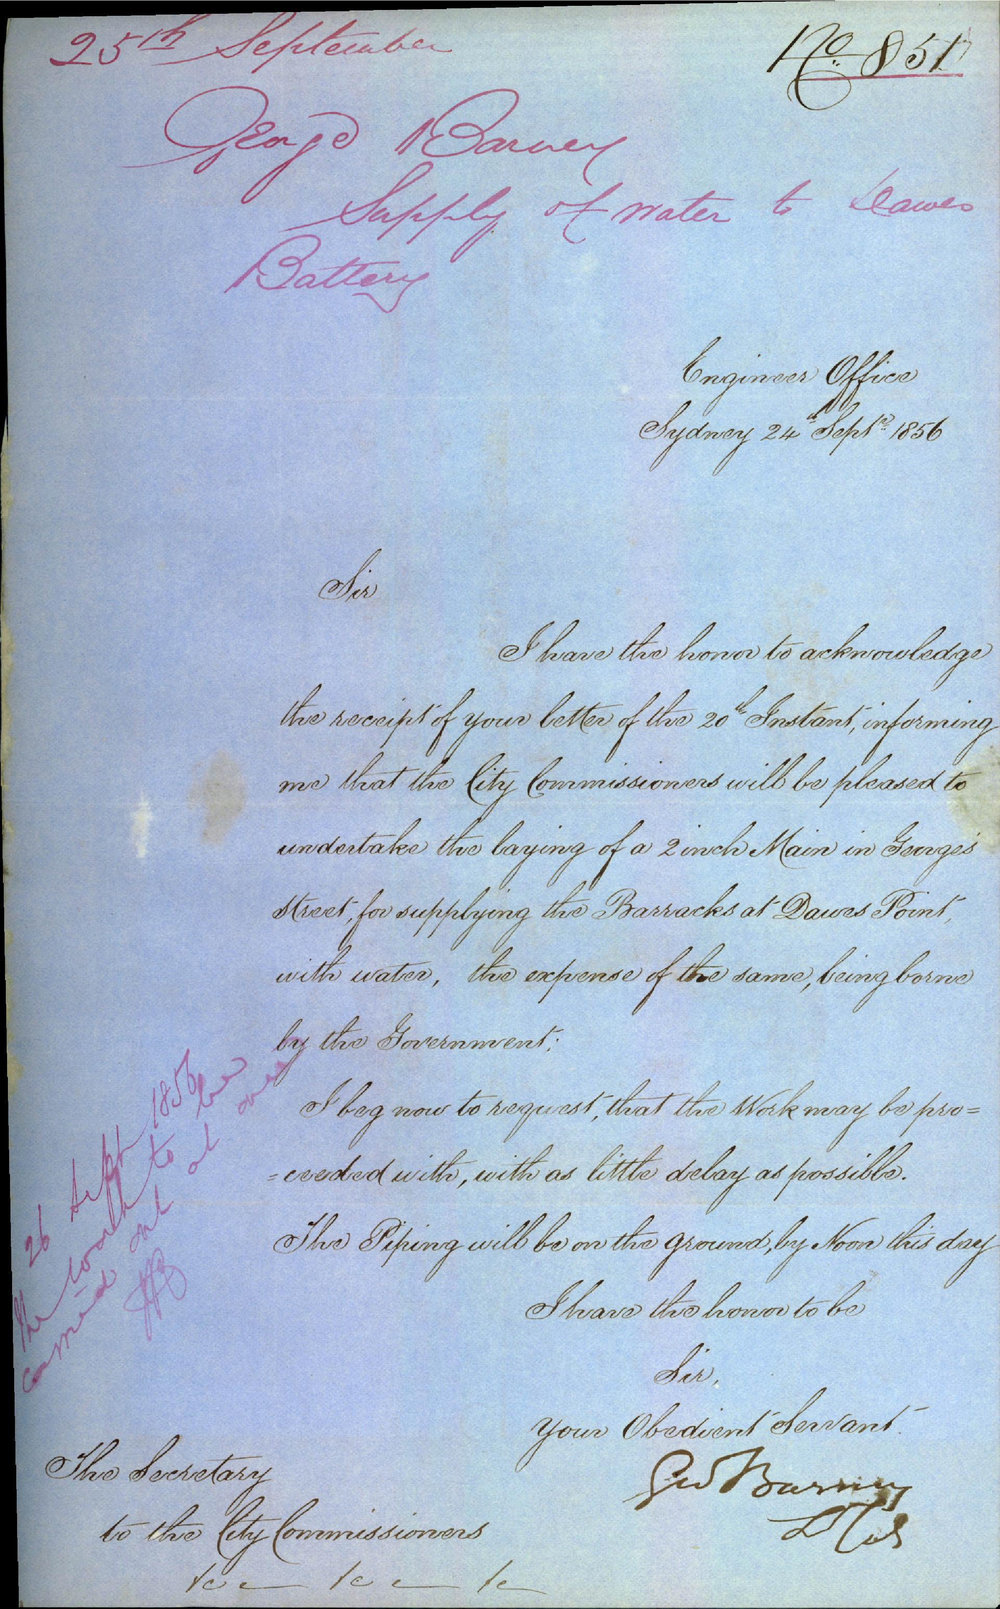 25th September
No. 851
George Barney
Supply of water to Dawes
Battery
Engineer Office
Sydney 24th Septr. 1856
Sir
I have the honor to acknowledge
the receipt of your letter of the 20th Instant, informing
me that the City Commissioners will be pleased to
undertake the laying of a 2 inch Main in George's
Street, for supplying the Barracks at Dawes Point,
with water, the expense of the same, being borne
by the Government;
I beg now to request, that the Work may be pro=
=ceeded with, with as little delay as possible.
The Piping will be on the ground, by Noon this day
I have the honor to be
Sir,
Your Obedient Servant.
Geo Barney
L Col
26 Sept 1856
The work to be
carried out at once
The Secretary
to the City Commissioners
&c &c &c